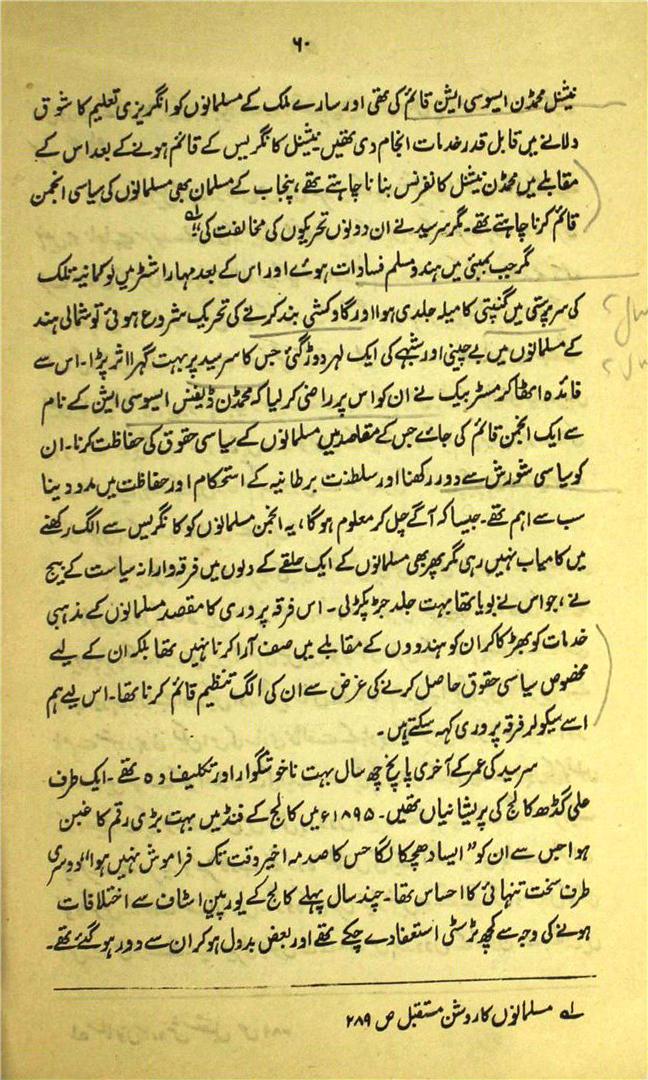 ۶۰
نیشنل محمڈن ایسوسی ایشن قائم کی تھی اور سارے ملک کے مسلمانوں کو انگریزی تعلیم کا شوق
دلانے میں قابل قدر خدمات انجام دی تھیں نیشنل کانگریس کے قائم ہونے کے بعد اس کے
مقابلے میں محمڈن نیشنل کانفرنس بنانا چاہتے تھے، پنجاب کے مسلمان بھی مسلمانوں کی سیاسی انجمن
قائم کرنا چاہتے تھے۔ مگر سرسید نے ان دونوں تحریکوں کی مخالفت کی۔؂۱
مگر جب بمبئی میں ہندو مسلم فسادات ہوئے اور اس کے بعد مہاراشٹر میں لوکمانیہ تلک
کی سرپرستی میں گنپتی کا میلہ جلدی ہوا اور گاؤ کشی بند کرنے کی تحریک شروع ہوئی تو شمالی ہند
کے مسلمانوں میں بے چینی اور شبہے کی ایک لہر دوڑ گئی جس کا سرسید پر بہت گہرا اثر پڑا۔ اس سے
فائدہ اٹھا کر مسٹر بیک نے ان کو اس پر راضی کر لیا کہ محمڈن ڈیفنس ایسوسی ایشن کے نام
سے ایک انجمن قائم کی جائے جس کے مقاصد میں مسلمانوں کے سیاسی حقوق کی حفاظت کرنا۔ ان
کو سیاسی شورش سے دور رکھنا اور سلطنت برطانیہ کے استحکام اور حفاظت میں مدد دینا
سب سے اہم تھے۔ جیسا کہ آگے چل کر معلوم ہوگا، یہ انجمن مسلمانوں کو کانگریس سے الگ رکھنے
میں کامیاب نہیں رہی مگر پھر بھی مسلمانوں کے ایک حلقے کے دلوں میں فرقہ وارانہ سیاست کے بیج
نے، جو اس نے بویا تھا بہت جلد جڑ پکڑ لی۔ اس فرقہ پروری کا مقصد مسلمانوں کے مذہبی
خدمات کو بھڑکا کر ان کو ہندووں کے مقابلے میں صف آرا کرنا نہیں تھا بلکہ ان کے لیے
مخصوص سیاسی حقوق حاصل کرنے کی غرض سے ان کی الگ تنظیم قائم کرنا تھا۔ اس لیے ہم
اسے سیکولر فرقہ پروری کہہ سکتے ہیں۔
سرسید کی عمر کے آخری پانچ چھ سال بہت ناخوشگوار اور تکلیف دہ تھے۔ ایک طرف
علی گڈھ کالج کی پریشانیاں تھیں۔ ۱۸۹۵ء میں کالج کے فنڈ میں بہت بڑی رقم کا غبن
ہوا جس سے ان کو "ایسا دھچکا لگا جس کا صدمہ اخیر وقت تک فراموش نہیں ہوا" دوسری
طرف سخت تنہائی کا احساس تھا۔ چند سال پہلے کالج کے یورپین اسٹاف سے اختلافات
ہونے کی وجہ سے کچھ ٹرسٹی استعفا دے چکے تھے اور بعض بددل ہو کر ان سے دور ہو گئے تھے۔
؂۱ مسلمانوں کا روشن مستقبل ص ۲۸۹